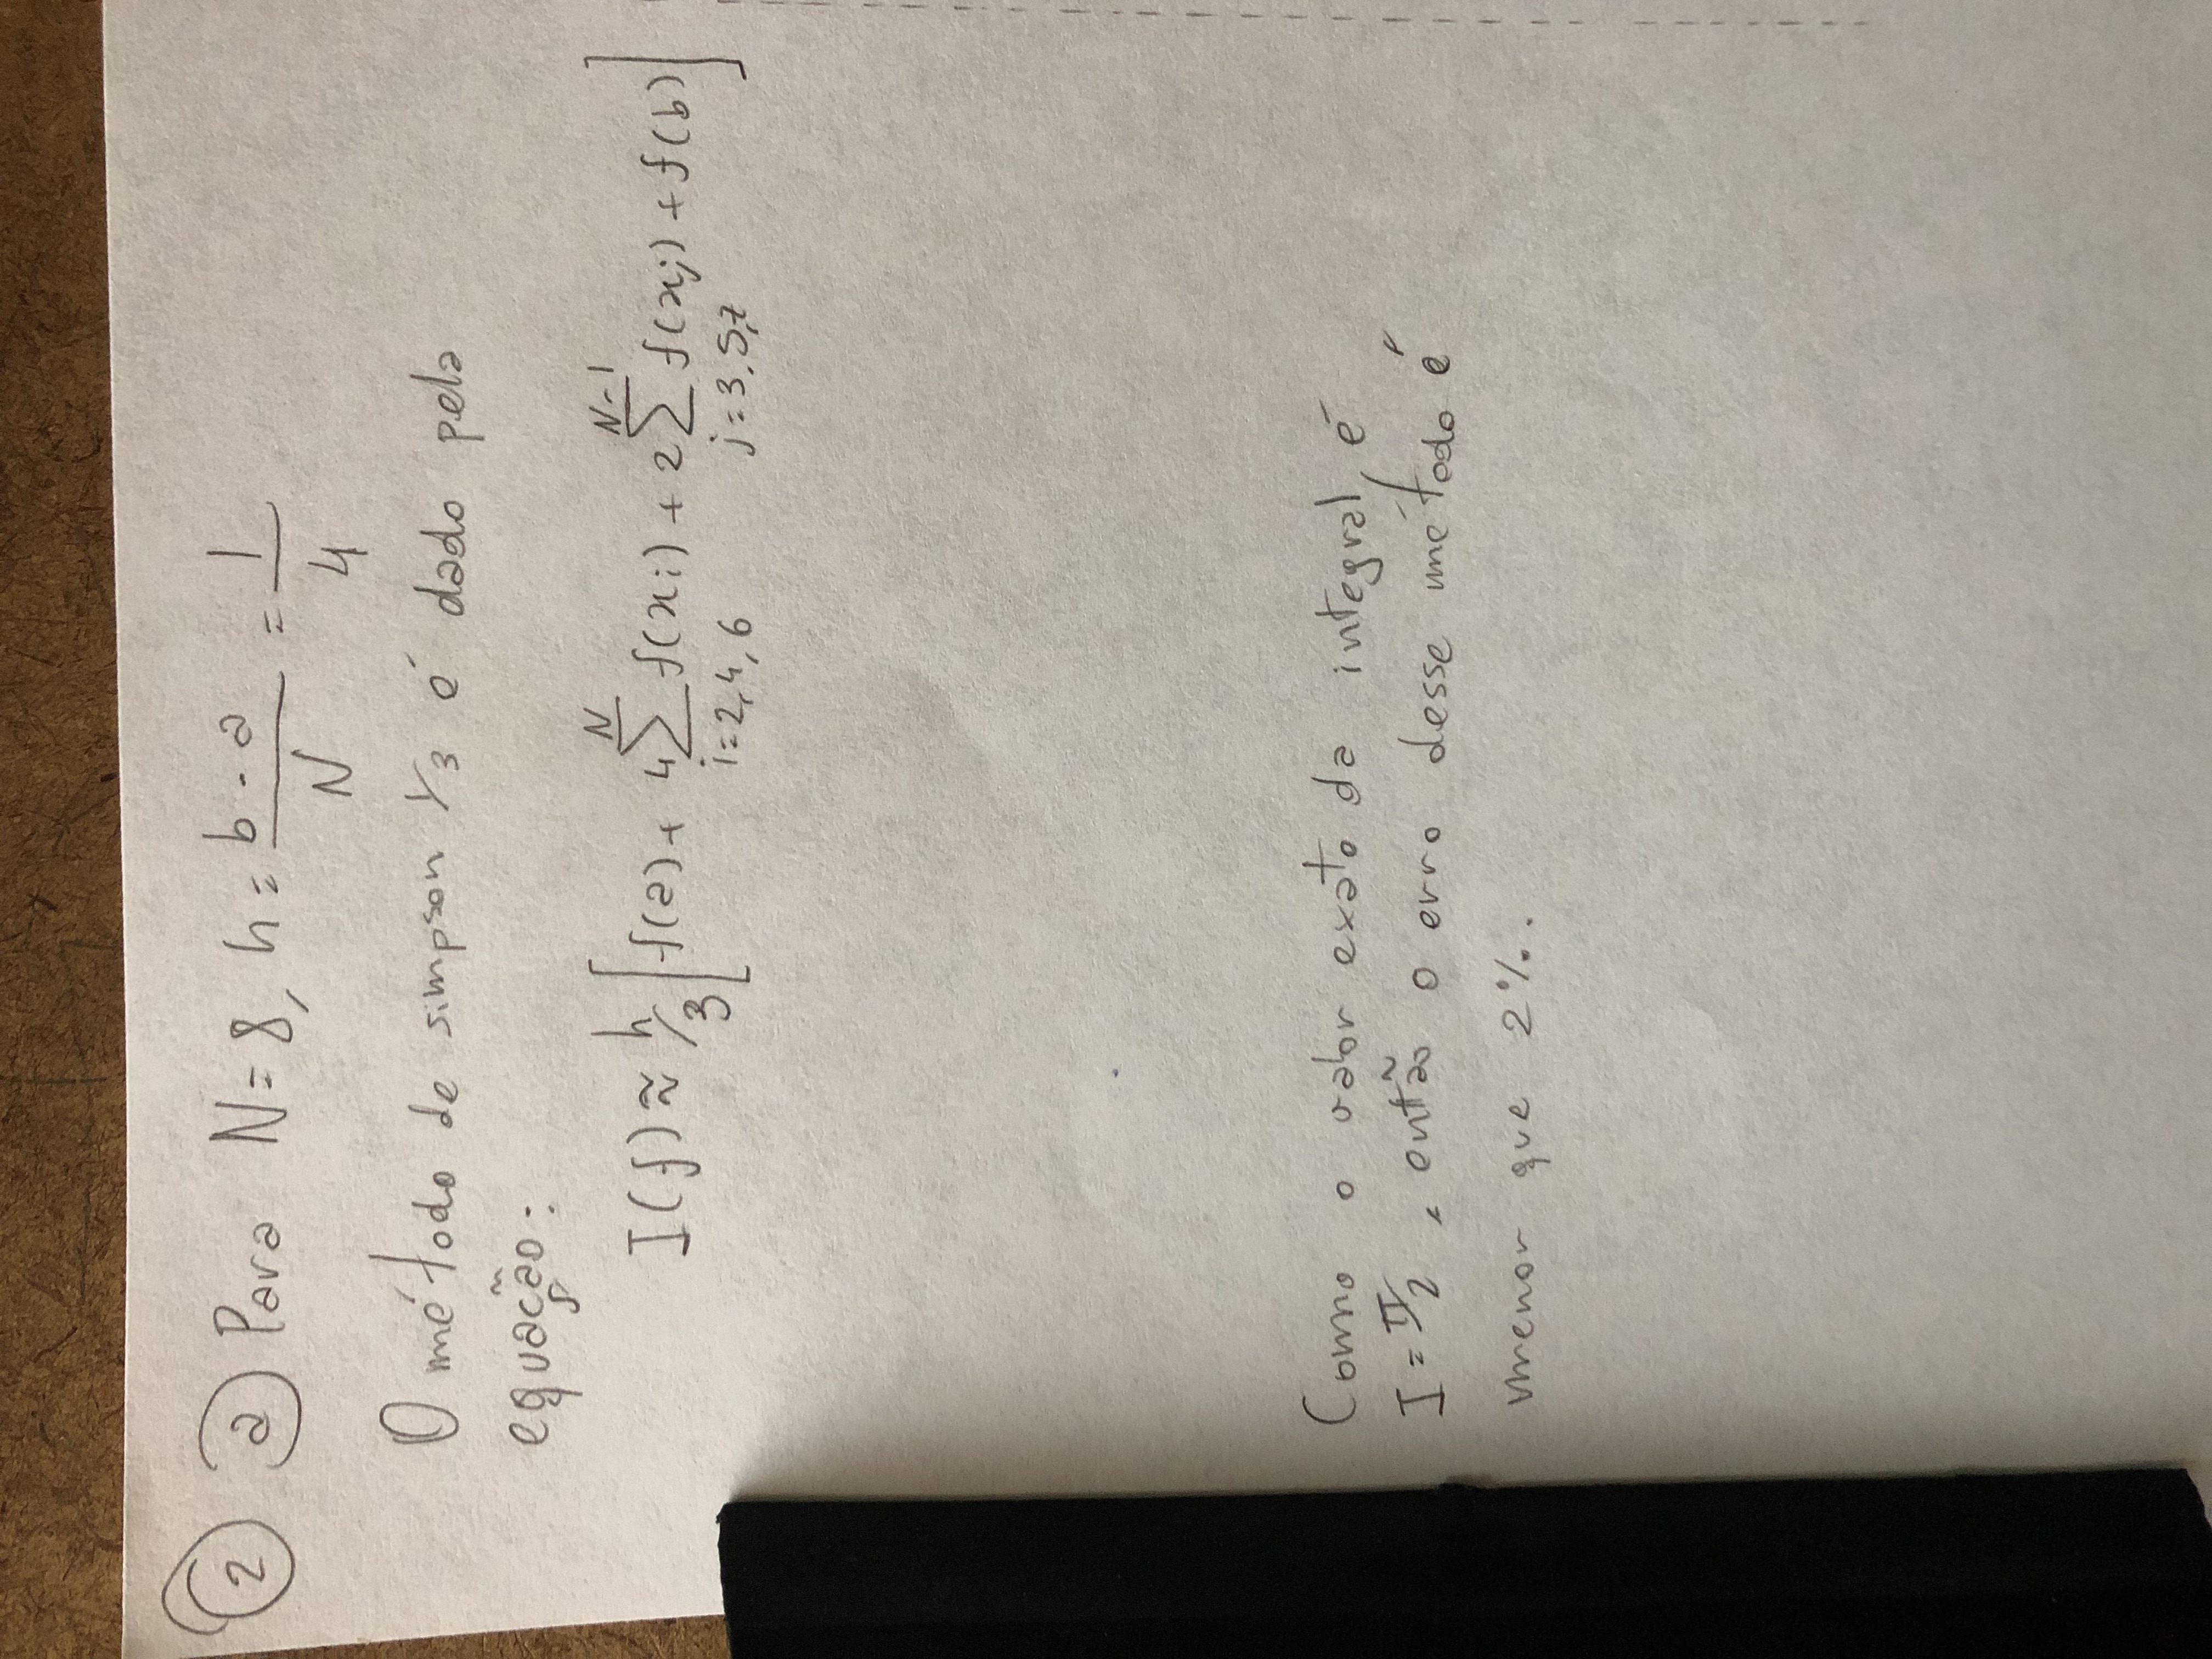 2 a) Para N=8, h = b-a/N = 1/4
O método de simpson 1/3 é dado pela
equação:
I(f) ≈ h/3 [f(a) + 4 N∑i=2,4,6 f(xi) + 2 N-1∑j=3,5,7 f(xj) + f(b)]
Como o valor exato da integral é
I = π/2, então o erro desse método é
menor que 2%.